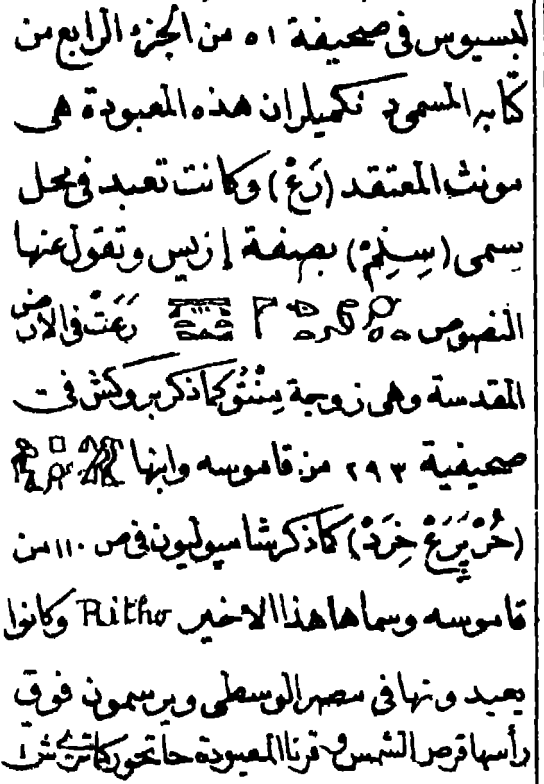 لبسيوس فى صحيفة ٥١ من الجزء الرابع من
كتابه المسمى د نكميلر ان هذه المعبودة هى
مونث المعتقد (رَعْ) وكانت تعبد فى محل
يسمى (سِنِمْ) بصفة إزيس وتقول عنها
النصوص رَعَتْ فى الارض
المقدسة وهى زوجة مِنْتُو كما ذكر بروكش فى
صحيفية ٢٩٣ من قاموسه وابنها
(حُرْ پَرَعْ خِرَدْ) كما ذكر شامبوليون فى ص ١١٠ من
قاموسه وسماها هذا الاخير Ritho وكانوا
يعبدونها فى مصر الوسطى ويرسمون فوق
رأسها قرص الشمس وقرنا المعبودة حاتحور كما ترى